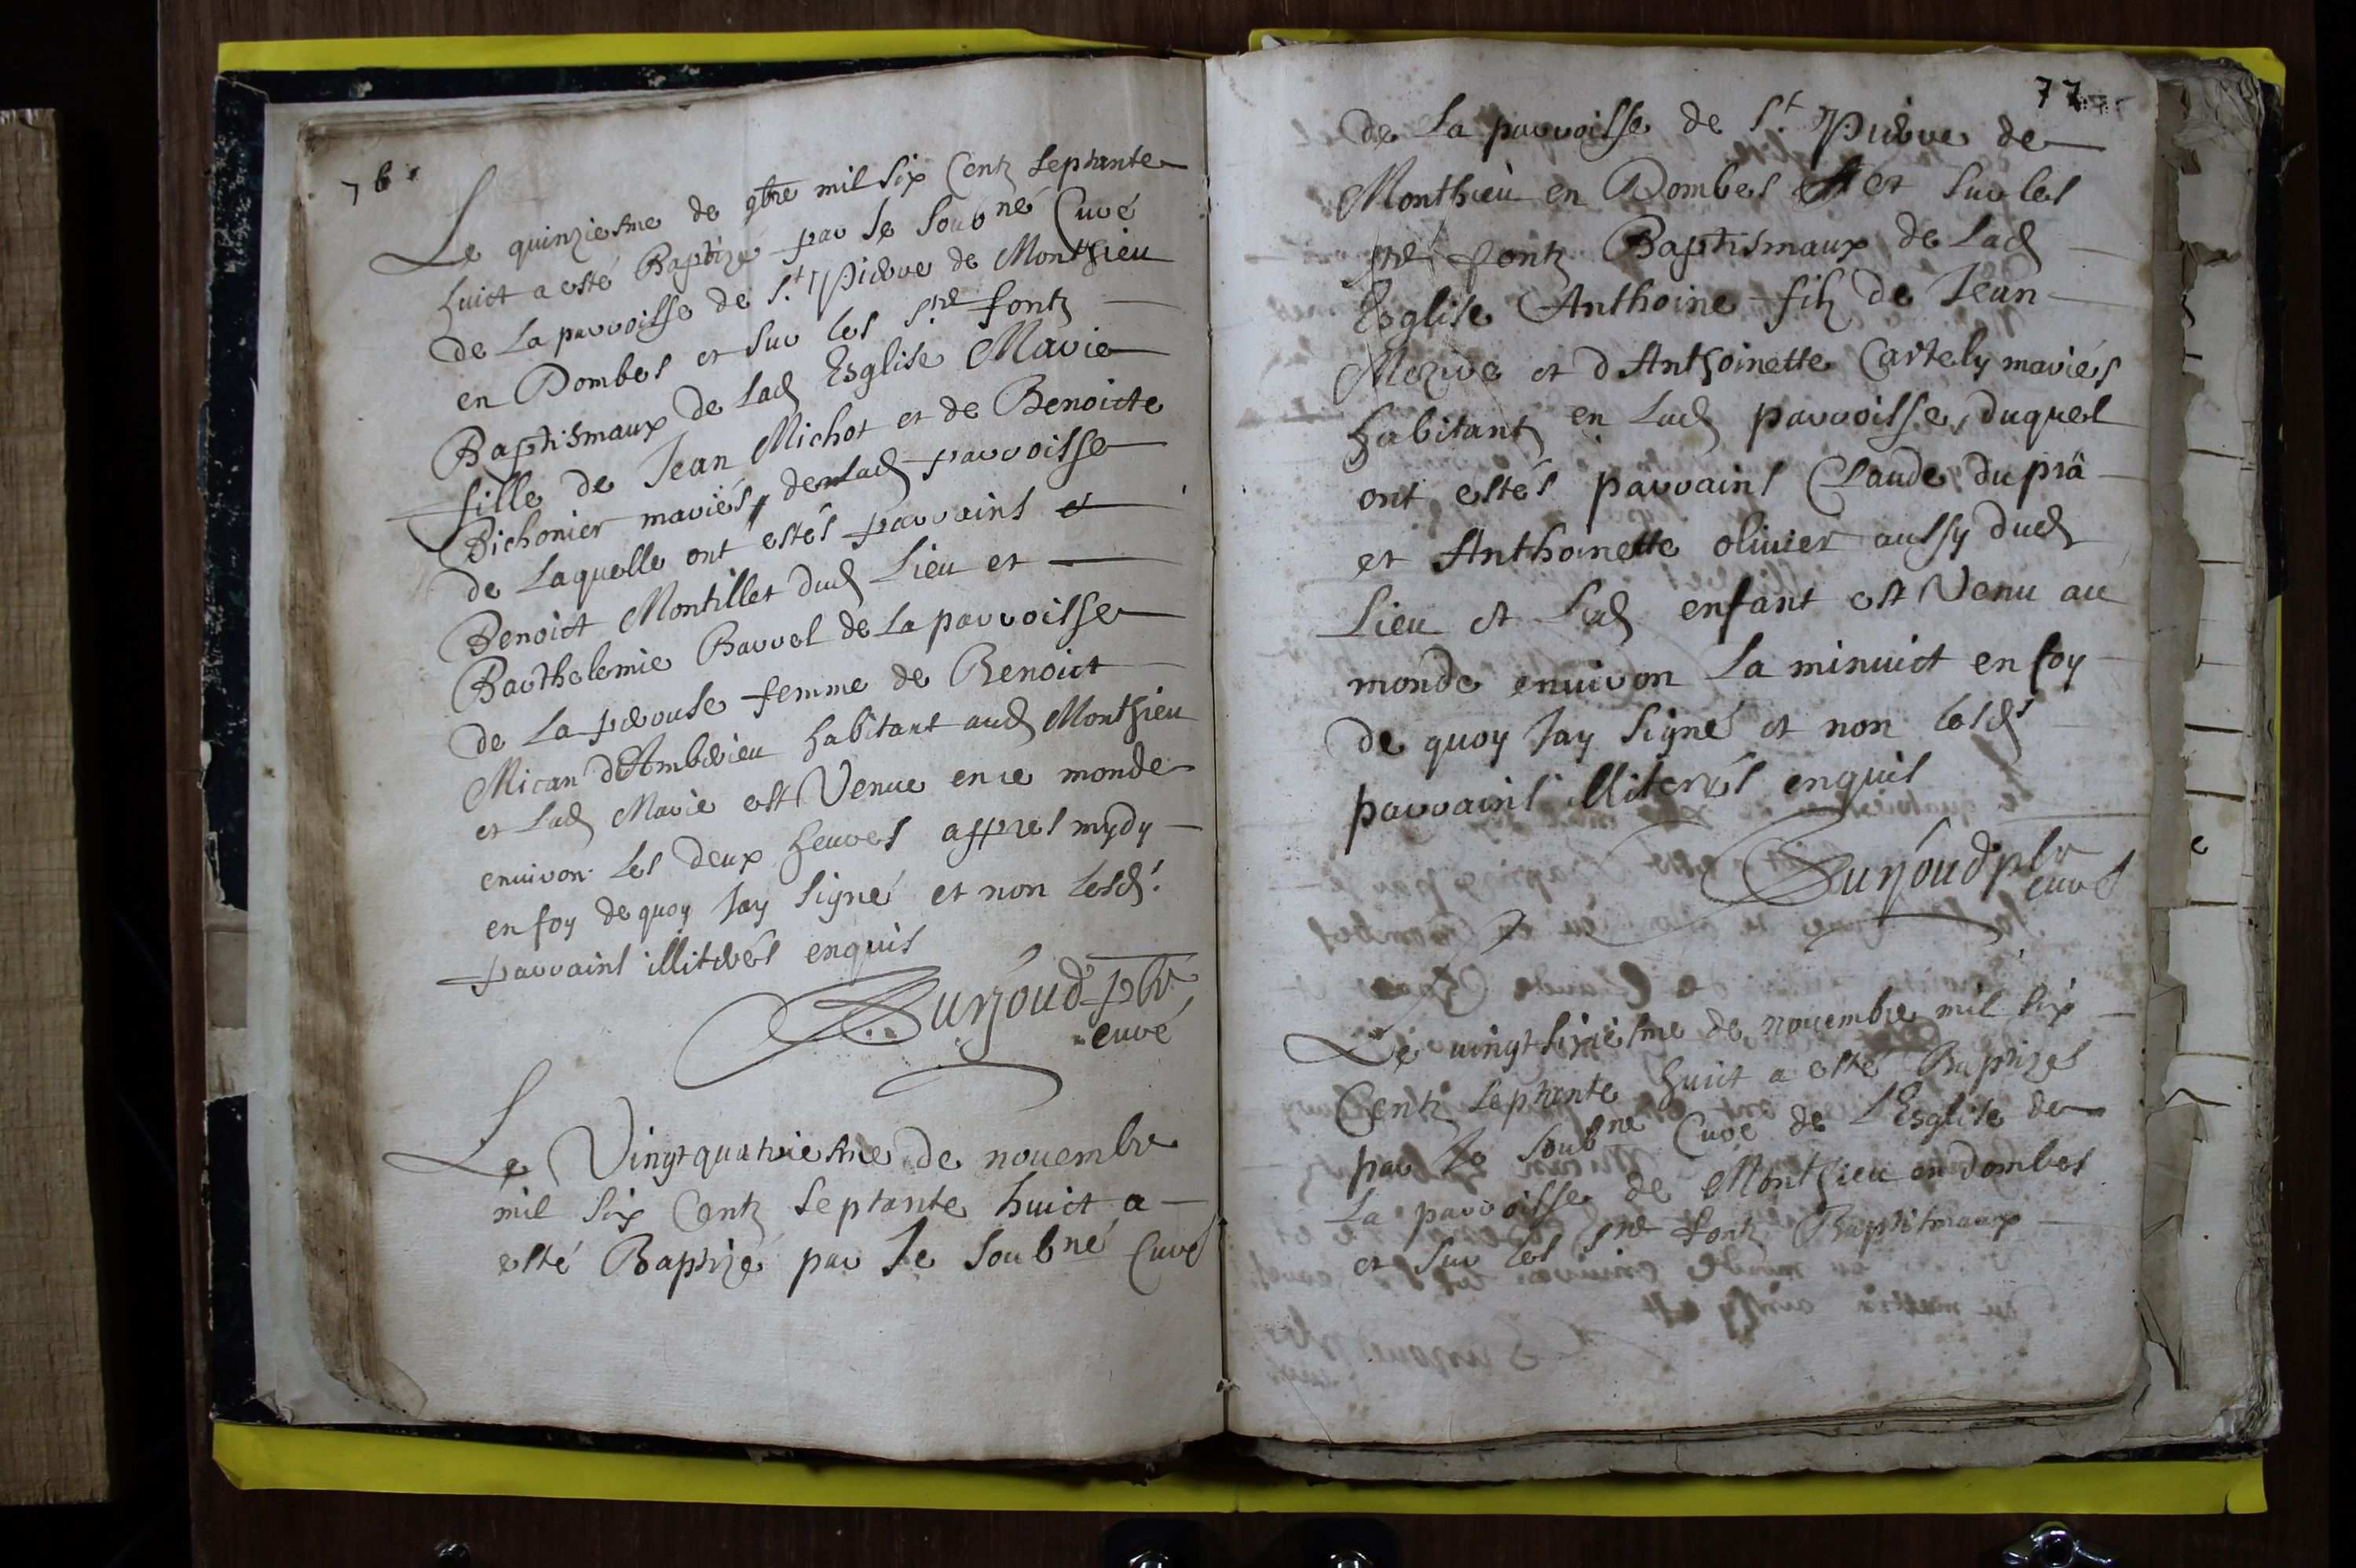 76
Le quinziesme de 9bre mil six Centz septante
huict a esté Baptizé par Je soubné Curé
de La parroisse de St Pierre de Monthieu
en Dombes et sur les sts fontz
Baptismaux de Lad Esglise Marie
fille de Jean Michot et de Benoicte
Bichonier mariés de Lad parroisse
de Laquelle ont estés parrains et
Benoict Montillet dud Lieu et
Barthelemie Barrel de La parroisse
de La perouse femme de Benoict
Mican d'Amberieu habitant aud Monthieu
et Lad Marie est Venue en ce monde
enuiron les deux heures appres mydy
en foy de quoy Jay signé et non lesds
parrains illiterés enquis
pbr
curé
Le Vingt quatriesme de nouembre
mil six Centz septante huict a
esté Baptizé par Je soubné Curé
77
de La parroisse de St Pierre de
Monthieu en Dombes et sur les
sts fontz Baptismaux de Lad
Esglise Anthoine filz de Jean
Mezire et d'Anthoinette Cartely mariés
habitantz en Lad parroisse, duquel
ont estés parrains Claude du prâ
et Anthoinette oliuier aussy dud
Lieu et Led enfant est Venu au
monde enuiron La minuict en foy
de quoy Jay signé et non lesds
parrains illiterés enquis
pbr
curé
Le uingt sixiesme de nouembre mil six
Centz septante huict a esté Baptizés
par Je soubné Curé de L'Esglise de
La parroisse de Monthieu en dombes
et sur les sts fontz Baptismaux